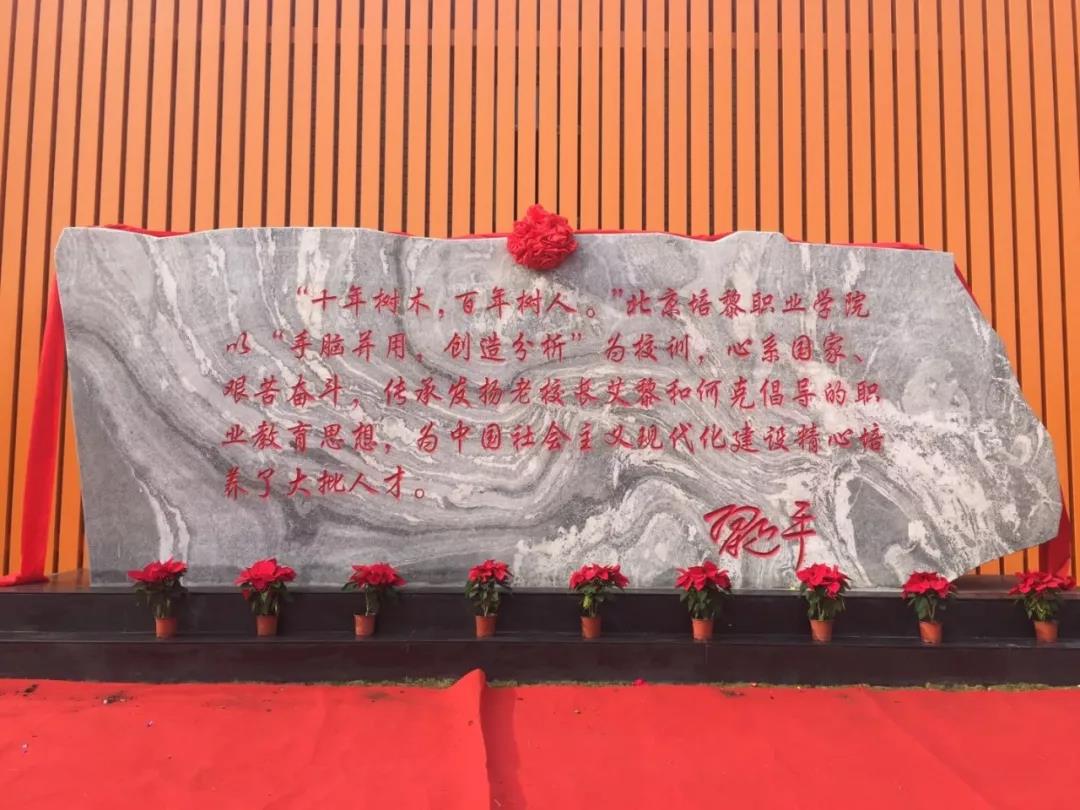 “十年树木，百年树人。”北京培黎职业学院
以“手脑并用，创造分析”为校训，心系国家、
艰苦奋斗，传承发扬老校长艾黎和何克倡导的职
业教育思想，为中国社会主义现代化建设精心培
养了大批人才。